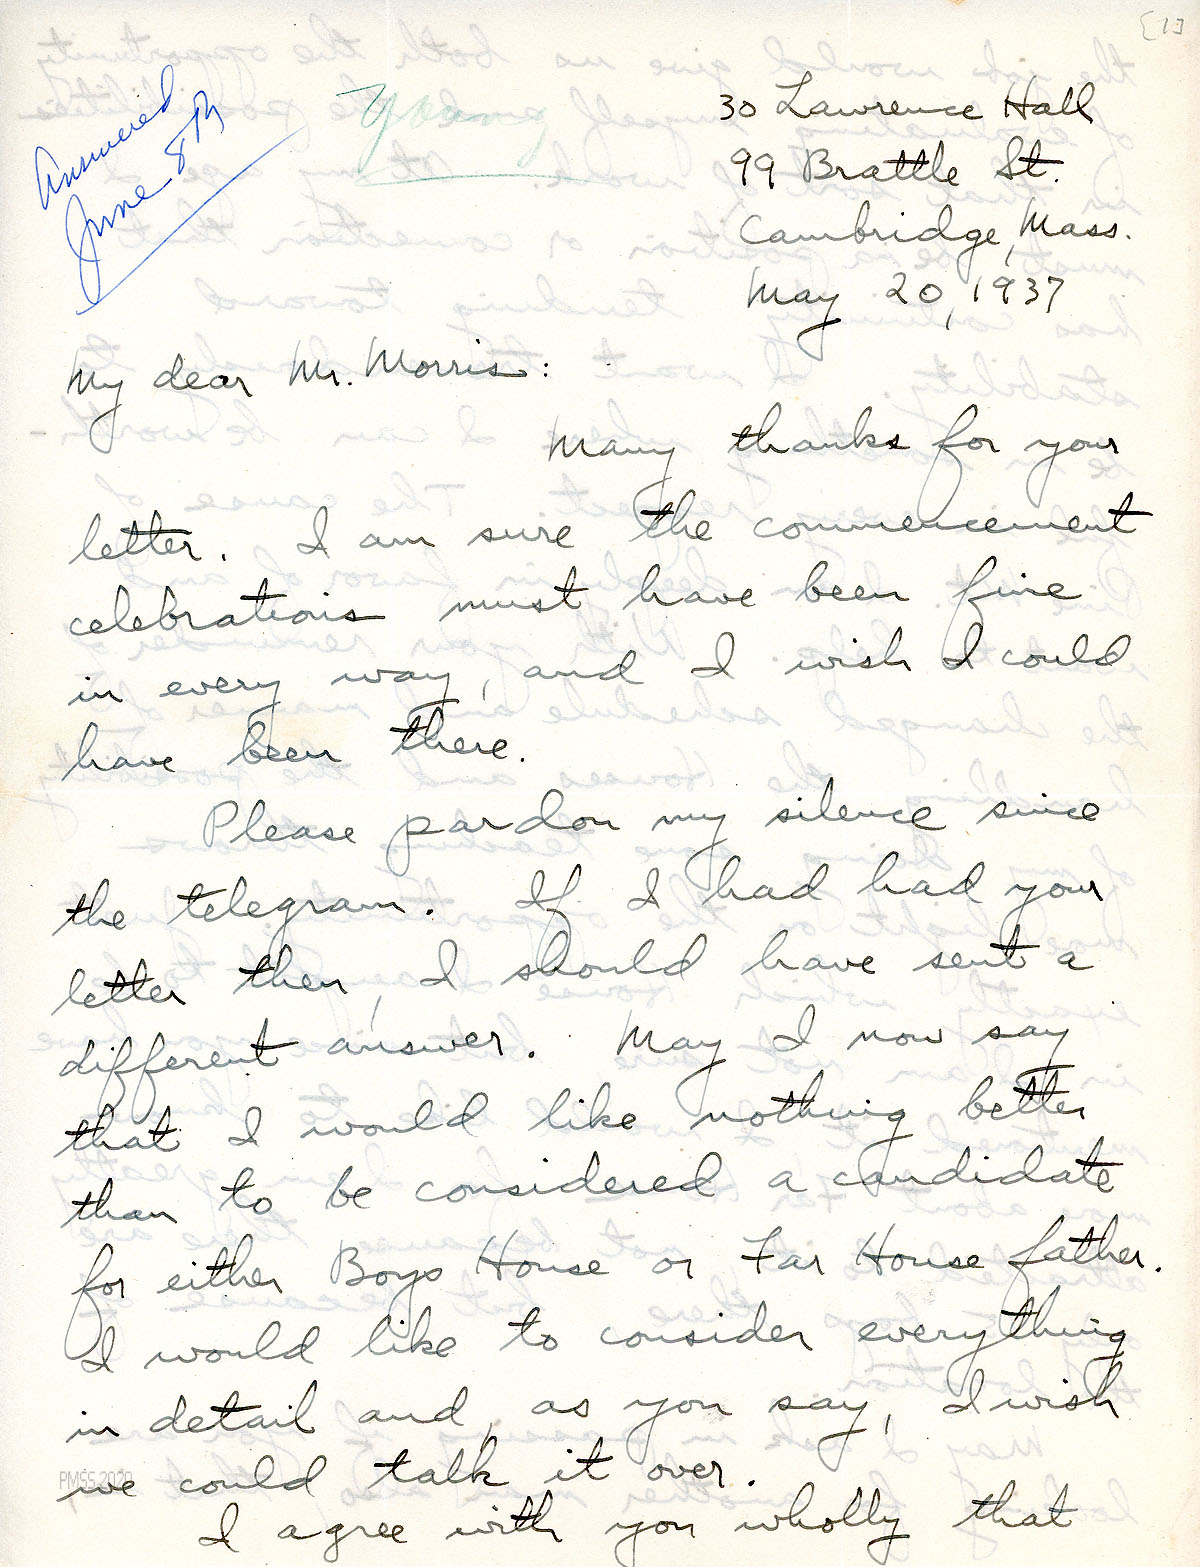 [1]
Answered
June 8th
Young
30 Lawrence Hall
99 Brattle St.
Cambridge, Mass.
May 20, 1937
My dear Mr. Morris:
Many thanks for your
letter. I am sure the commencement
celebrations must have been fine
in every way, and I wish I could
have been there.
Please pardon my silence since
the telegram. If I had had your
letter then, I should have sent a
different answer. May I now say
that I would like nothing better
than to be considered a candidate
for either Boys House or Far House father.
I would like to consider everything
in detail and, as you say, I wish
we could talk it over.
PMSS 2020
I agree with you wholly that